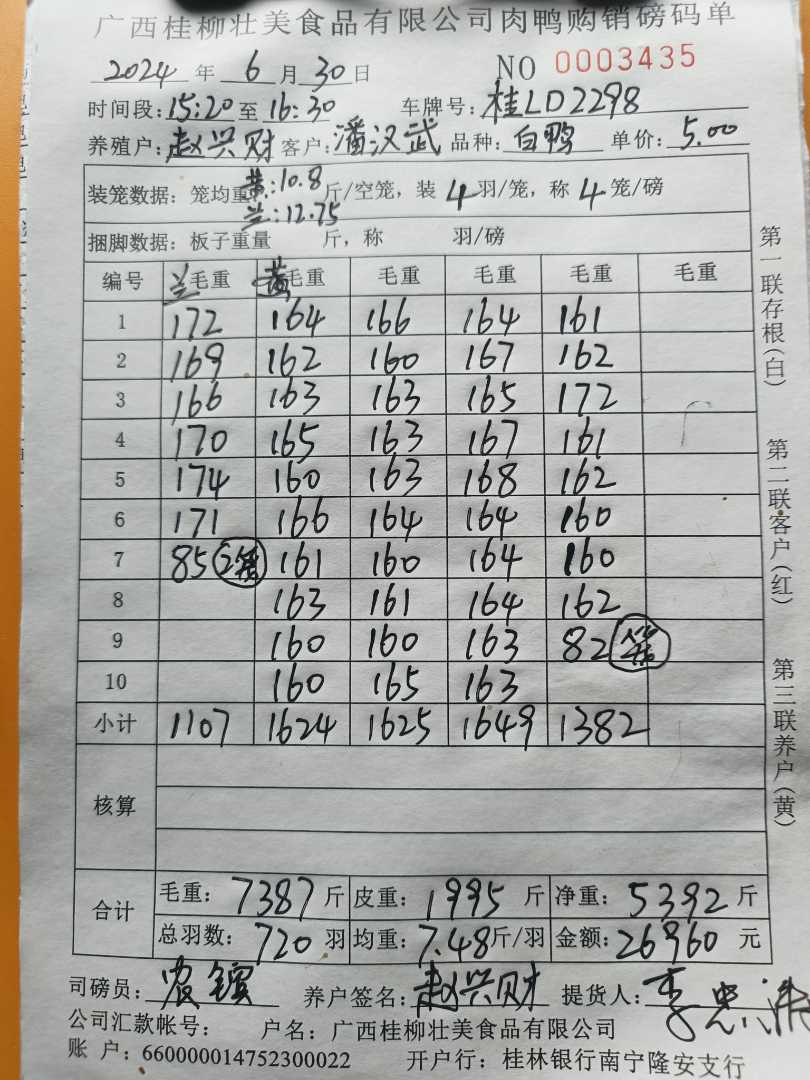 广西桂柳壮美食品有限公司肉鸭购销磅码单
2024 年 6 月 30 日 NO 0003435
时间段:15:20 至 16:30 车牌号:桂LD2298
养殖户:赵兴财 客户:潘汉武 品种:白鸭 单价:5.00
装笼数据:笼均重 黄:10.8 兰:12.75 斤/空笼,装 4 羽/笼,称 4 笼/磅
捆脚数据:板子重量 斤,称 羽/磅
编号 兰毛重 黄毛重 毛重 毛重 毛重 毛重
1 172 164 166 164 161
2 169 162 160 167 162
3 166 163 163 165 172
4 170 165 163 167 161
5 174 160 163 168 162
6 171 166 164 164 160
7 85 2笼 161 160 164 160
8 163 161 164 162
9 160 160 163 82 笼
10 160 165 163
小计 1107 1624 1625 1649 1382
核算
合计 毛重:7387斤 皮重:1995 斤 净重:5392斤
总羽数:720 羽 均重:7.48斤/羽 金额:26960 元
司磅员: 养户签名:赵兴财 提货人:李
公司汇款帐号: 户名:广西桂柳壮美食品有限公司
账 户:660000014752300022 开户行:桂林银行南宁隆安支行
第一联存根(白)
第二联客户(红)
第三联养户(黄)